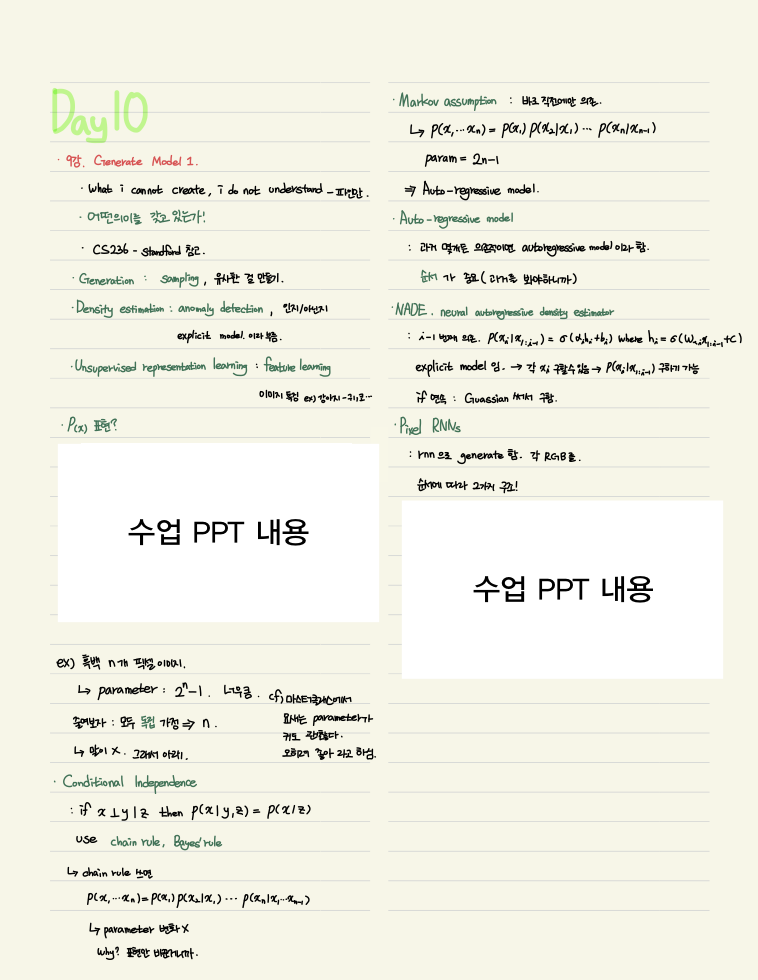 Day 10
· 9강. Generate Model 1.
· What i cannot create, i do not understand - 파인만.
· 어떤의미를 갖고 있는가!
· CS236 - standford 참고.
· Generation : sampling, 유사한 걸 만들기.
· Density estimation : anomaly detection, 인지/아닌지
explicit model. 이라 부름.
· Unsupervised representation learning : feature learning
이미지 특징 ex) 강아지 - 귀, 코...
· P(x) 표현?
수업 PPT 내용
ex) 흑백 n개 픽셀 이미지.
↳ parameter : 2ⁿ-1. 너무큼.
줄여보자 : 모두 독립 가정 ⇒ n.
↳ 말이 X. 그래서 아래!.
cf) 마스터클래스에서
요새는 parameter가
커도 괜찮다.
오히려 좋아 라고 하심.
· Conditional Independence
: if x ⊥ y | z then p(x|y,z) = p(x|z)
use chain rule, Bayes' rule
↳ chain rule 쓰면
p(x₁ ··· xₙ) = p(x₁) p(x₂|x₁) ··· p(xₙ|x₁···xₙ₋₁)
↳ parameter 변화 X
why? 표현만 바꾼거니까.
· Markov assumption : 바로 직전에만 의존.
↳ p(x₁ ··· xₙ) = p(x₁) p(x₂|x₁) ··· p(xₙ|xₙ₋₁)
param = 2n-1
⇒ Auto-regressive model.
· Auto-regressive model
: 과거 몇개든 의존적이면 autoregressive model 이라 함.
순서 가 중요 (과거를 봐야하니까)
· NADE. neural autoregressive density estimator
: i-1 번째 의존. p(xᵢ|x₁:ᵢ₋₁) = σ(αᵢhᵢ+bᵢ) where hᵢ = σ(W<ᵢx₁:ᵢ₋₁+c)
explicit model 임. → 각 xᵢ 구할수 있음 → p(xᵢ|x₁:ᵢ₋₁) 구하기 가능
if 연속 : Guassian 써서 구함.
· Pixel RNNs
: rnn 으로 generate 함. 각 RGB를.
순서에 따라 2가지 구조!
수업 PPT 내용